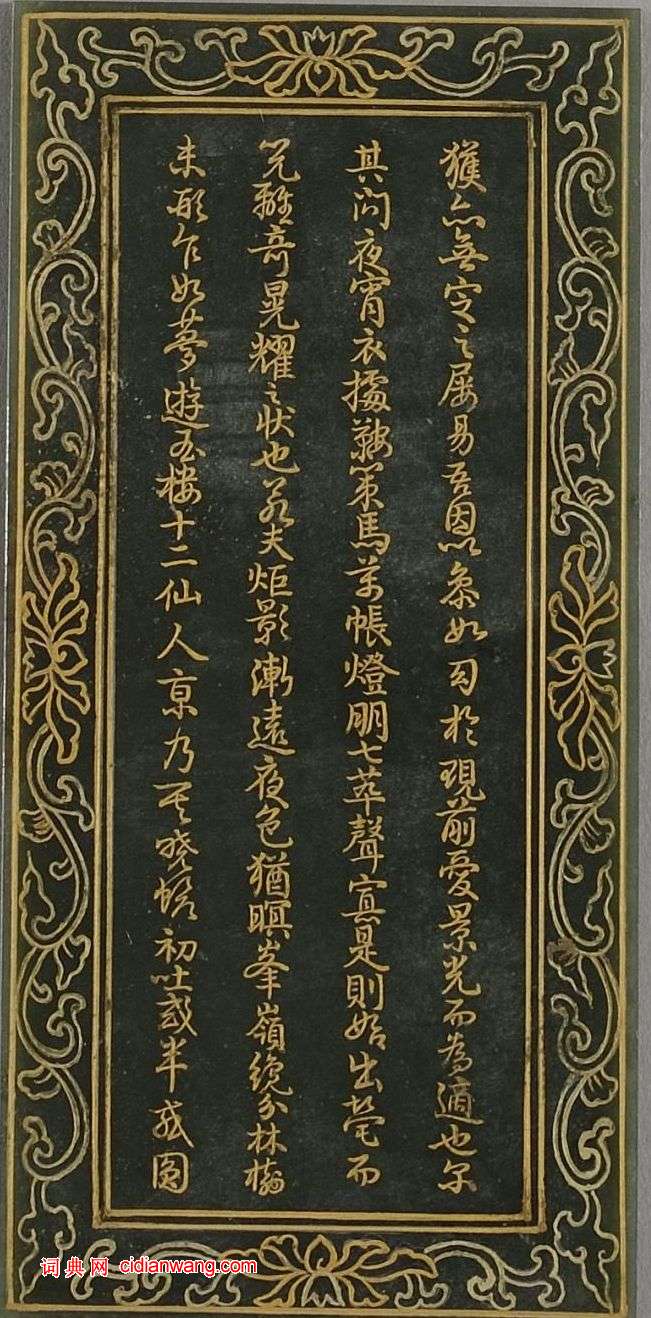 獲亦無字之屢易吾因以參如句於現前愛景光而為適也尔
其問夜宵衣據鞍策馬萬帳燈明七萃聲寘是則始出營而
覽離奇晃耀之狀也若夫炬影漸遠夜色猶暝峯嶺纔分林樹
未形乍如夢遊五樓十二仙人京乃其曉蟾初吐或半或圓
词典网 cidianwang.com